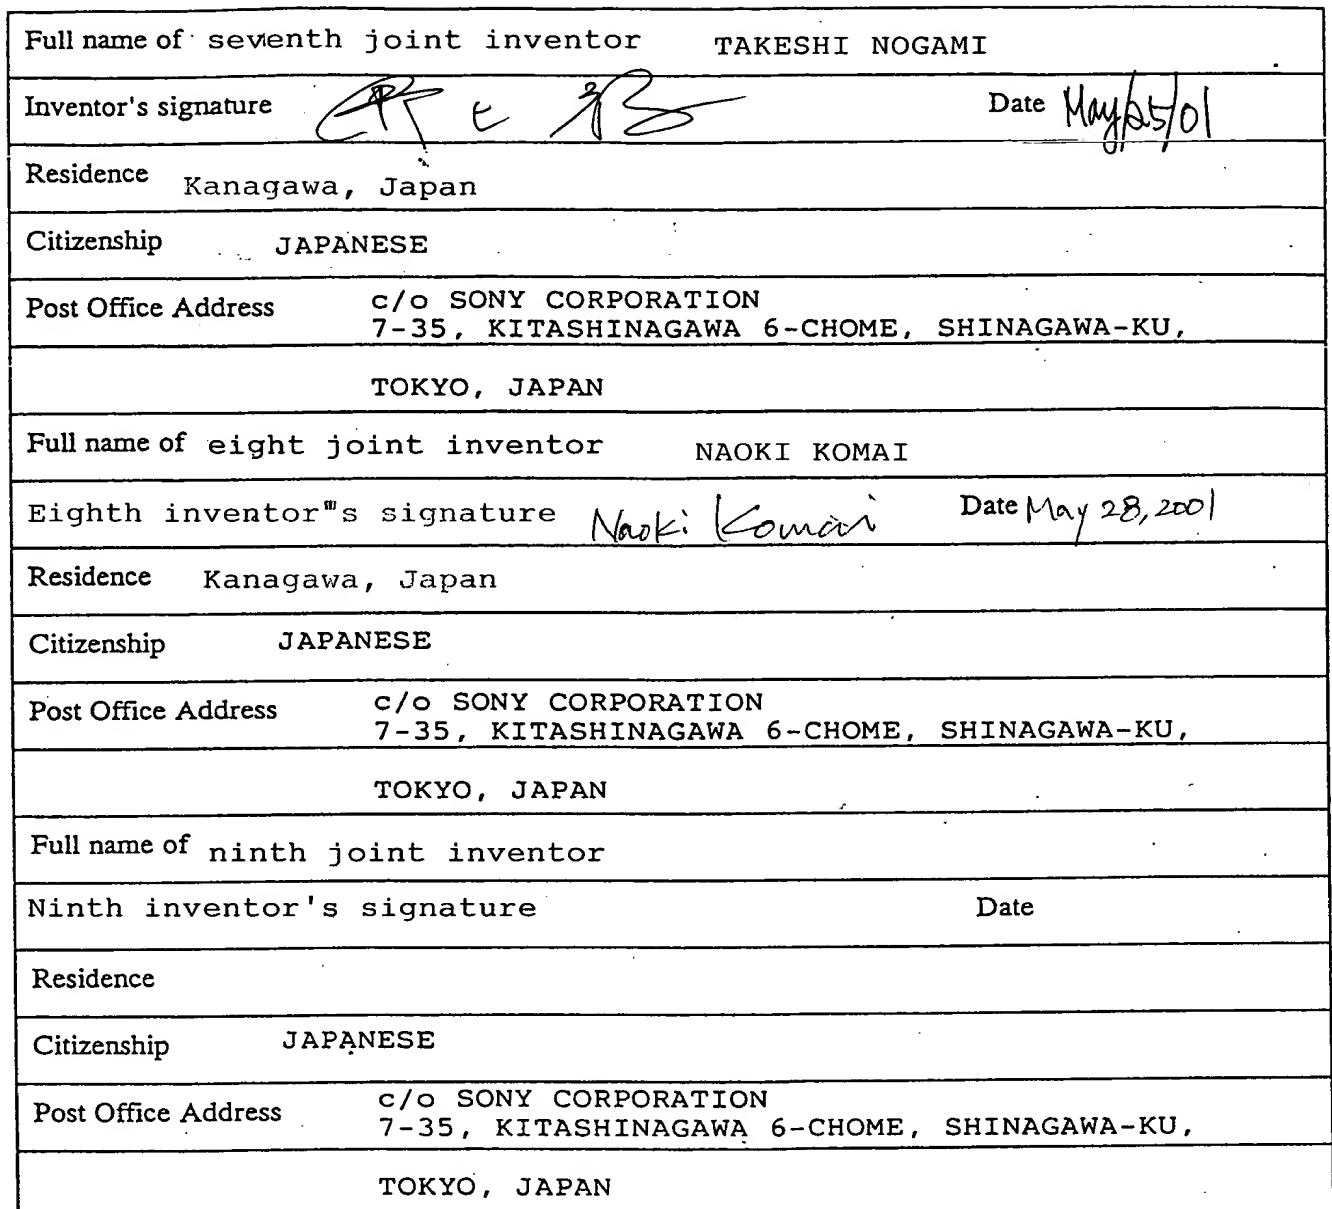 Full name of seventh joint inventor TAKESHI NOGAMI
Inventor's signature Date May/25/01
Residence Kanagawa, Japan
Citizenship JAPANESE
Post Office Address c/o SONY CORPORATION
7-35, KITASHINAGAWA 6-CHOME, SHINAGAWA-KU,
TOKYO, JAPAN
Full name of eight joint inventor NAOKI KOMAI
Eighth inventor"'s signature Naoki Komai Date May 28, 2001
Residence Kanagawa, Japan
Citizenship JAPANESE
Post Office Address c/o SONY CORPORATION
7-35, KITASHINAGAWA 6-CHOME, SHINAGAWA-KU,
TOKYO, JAPAN
Full name of ninth joint inventor
Ninth inventor's signature Date
Residence
Citizenship JAPANESE
Post Office Address c/o SONY CORPORATION
7-35, KITASHINAGAWA 6-CHOME, SHINAGAWA-KU,
TOKYO, JAPAN